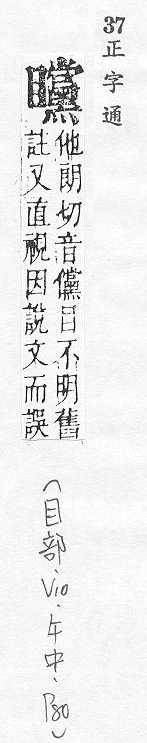 37正字通
矘
他朗切音儻目不明舊
註又直視因說文而誤
(目部、V10、午中、P80)